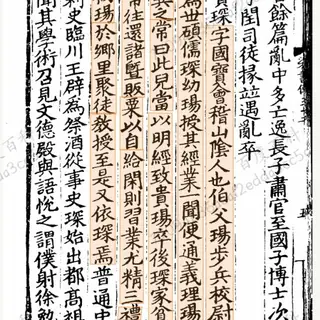 餘篇亂中多亡逸長子肅官至國子博士次
子閏司徒掾竝遇亂卒
賀琛字國寶會稽山陰人也伯父瑒步兵校尉
爲世碩儒琛幼瑒授其經業一聞便通義理瑒
異之常曰此兒當以明經致貴瑒卒後琛家貧
常往還諸暨販粟以自給閑則習業尤精三禮
初瑒於鄉里聚徒教授至是又依琛焉普通中
刺史臨川王辟爲祭酒從事史琛始出都高祖
聞其學術召見文德殿與語悅之謂僕射徐勉